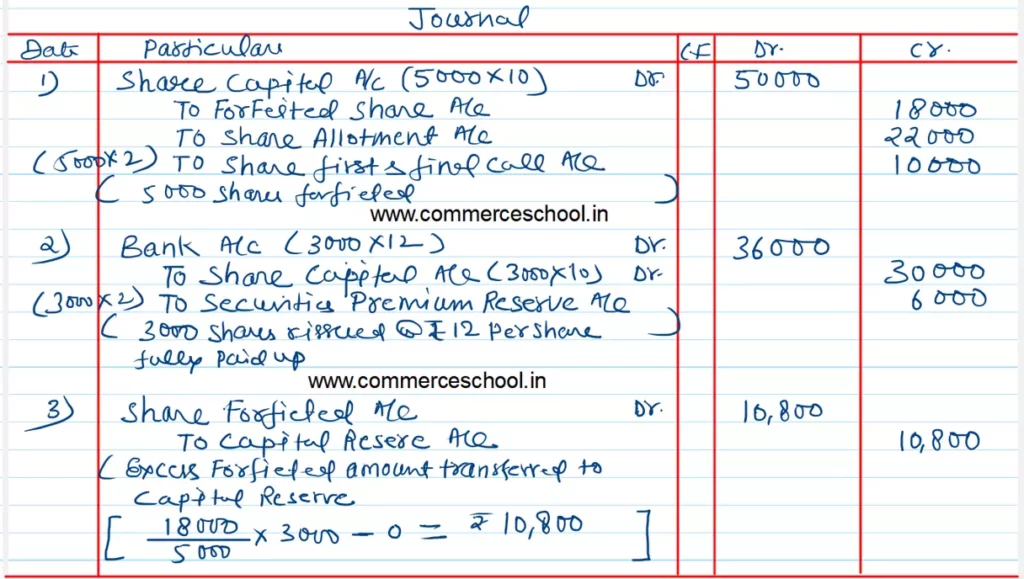 Journal
Date Particulars C.F Dr. Cr.
1) Share Capital A/c (5000×10) Dr 50000
To Forfeited Share A/c 18000
To Share Allotment A/c 22000
(5000×2) To Share first & final call A/c 10000
( 5000 shares forfieted )
www.commerceschool.in
2) Bank A/c (3000×12) Dr. 36000
To Share Capital A/c (3000×10) Dr 30000
(3000×2) To Securities Premium Reserve A/c 6000
( 3000 shares rissued @ ₹12 Per share )
fully paid up
www.commerceschool.in
3) Share Forfieted A/c Dr. 10,800
To Capital Resere A/c 10,800
( Excess Forfieted amount transferred to
Capital Reserve
[ 18000/5000 × 3000 - 0 = ₹ 10,800 ]